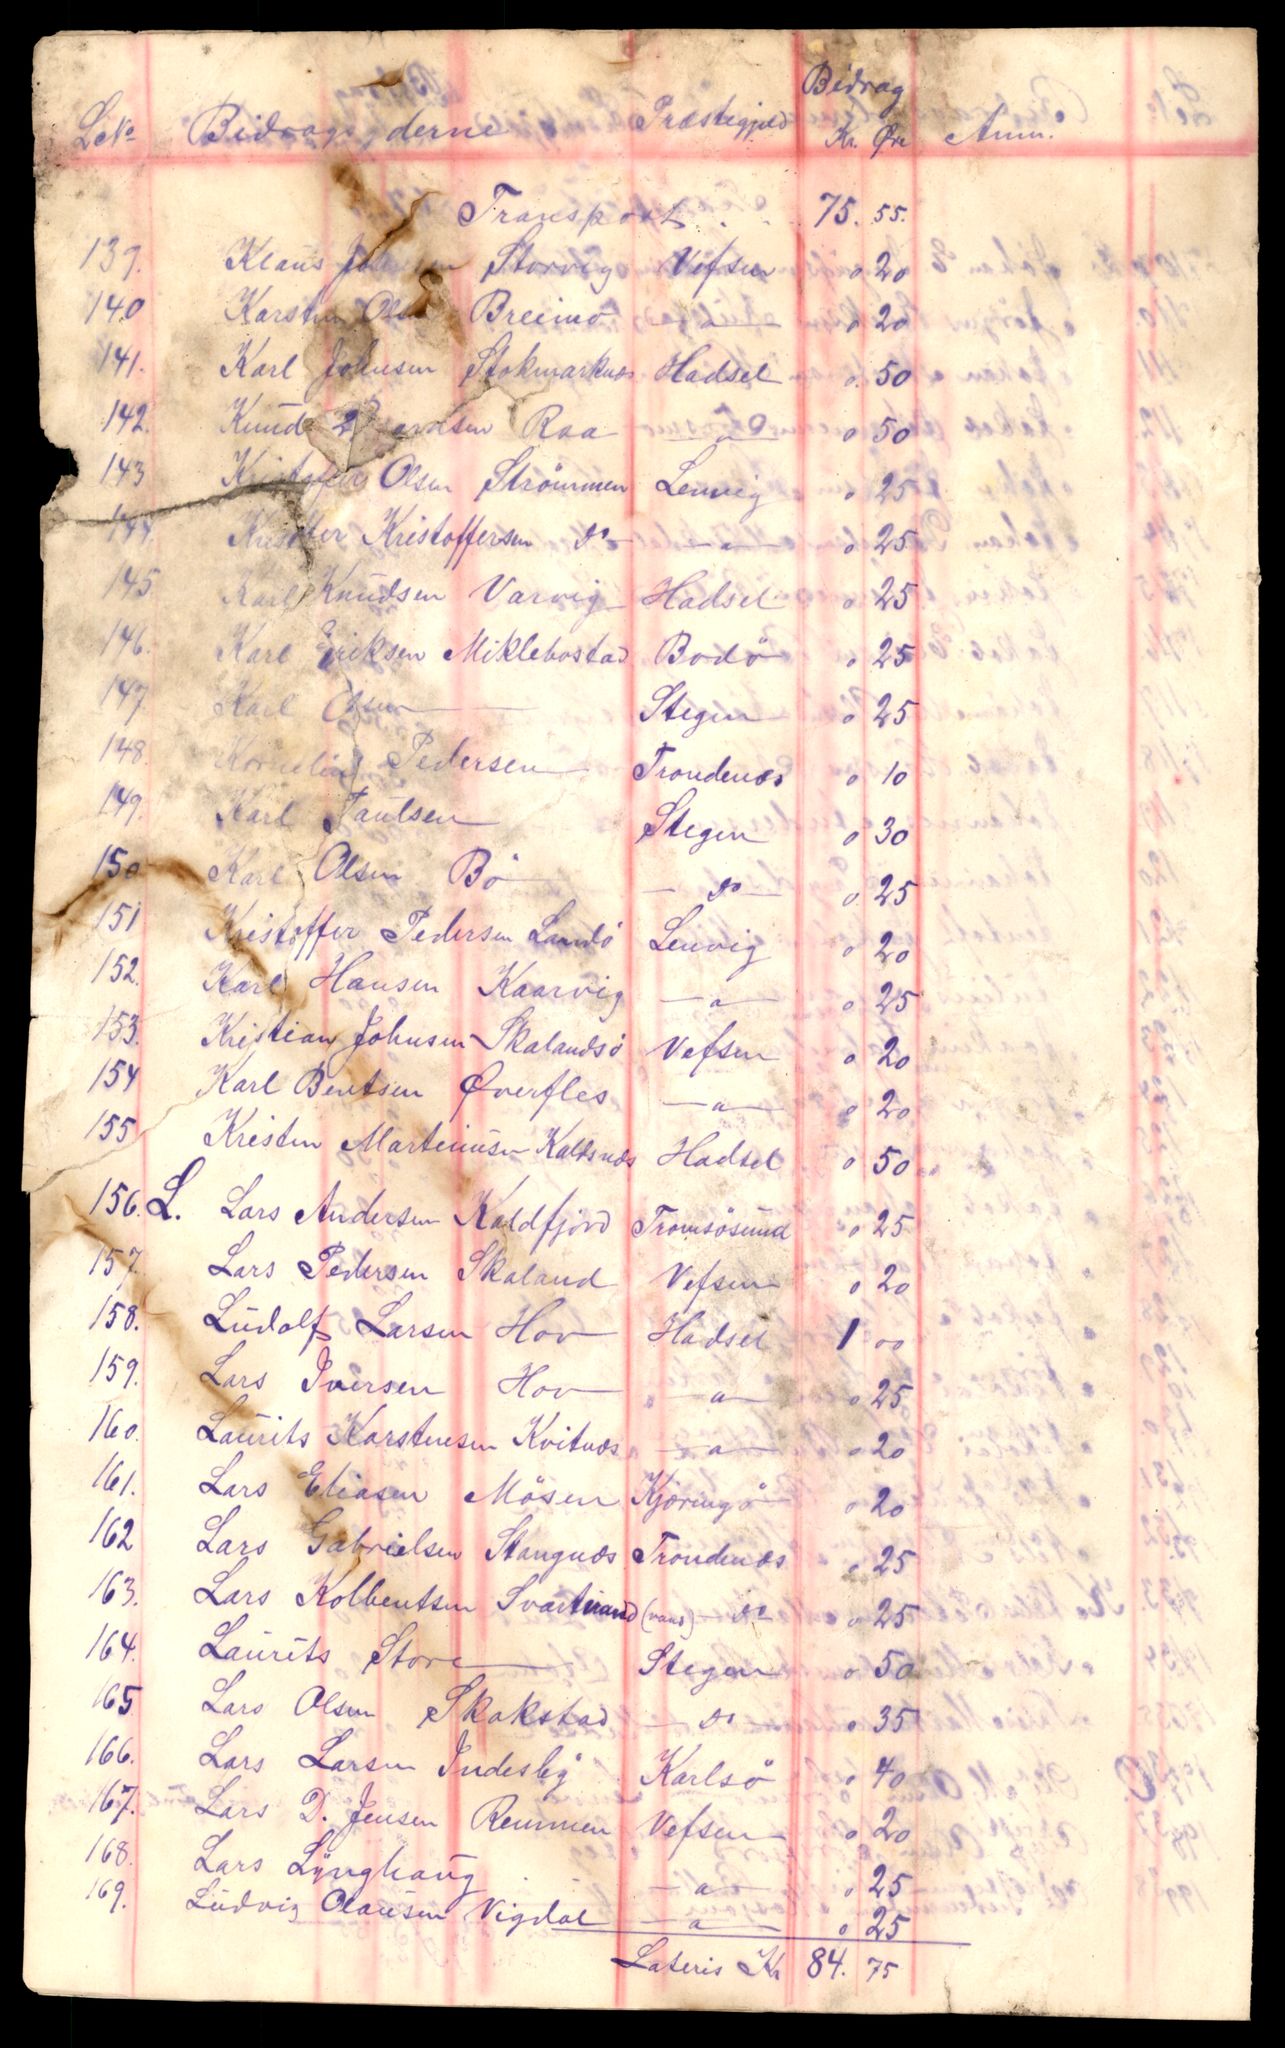 LNo Bidragsyderne Præstegjeld Bidrag Kr. Øre Anm.
Transport . . 75. 55.
139. Klaus Johnsen Storvig Vefsen 0 20
140 Karsten Olsen Breimo —a— 0 20
141. Karl Johnsen Stokmarknæs Hadsel 0. 50
142. Knud Raa —a— 0 50
143 Kristoffer Olsen Strömmen Lenvig 0 25
144. Kristoffer Kristoffersen do —a— 0 25
145 Karl Knudsen Varvig Hadsel 0 25
146. Karl Eriksen Miklebostad Bodö 0 25
147 Karl Olsen — Stegen 0 25
148. Kornelius Pedersen Trondenæs 0 10
149. Karl Paulsen Stegen 0 30
150 Karl Olsen Bö — do — 0. 25
151 Kristoffer Pedersen Landö Lenvig 0 20
152. Karl Hansen Kaarvig —a— 0 25
153. Kristian Johnsen Skalandsö Vefsen 0 20
154 Karl Bentsen Øverfles —a— 0 20
155 Kristen Martinusen Kaldsnæs Hadsel 0 50
156. L. Lars Andersen Kaldfjord Tromsösund 0 25
157. Lars Pedersen Skaland Vefsen 0 20
158. Ludolf Larsen Hov Hadsel 1 00
159. Lars Iversen Hov —a— 0 25
160. Laurits Karstensen Kvitnæs —a— 0 20
161. Lars Eliasen Mösen Kjæringö 0 20
162 Lars Gabrielsen Stangnæs Trondenæs 0 25
163. Lars Kolbentsen Svartvand (vand) — do 0 25
164. Laurits Store Stegen 0 50
165 Lars Olsen Skakstad — do 0 35
166. Lars Larsen Indesby Karlsö 0 40
167. Lars D. Jensen Remmen Vefsen 0 20
168. Lars Lynghaug . —a— 0 25
169. Ludvig Olausen Vigdal —a— 0 25
Lateris Kr 84. 75